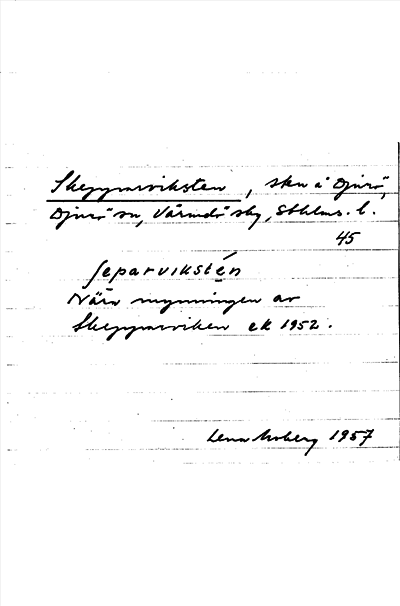 Skeppareviksten, sken å Djurö,
Djurö sn, Värmdö skg, Sthlms. l.
45
ʃeparvikstén
Nära mynningen av
Skepparviken ek 1952.
Lena Moberg 1957